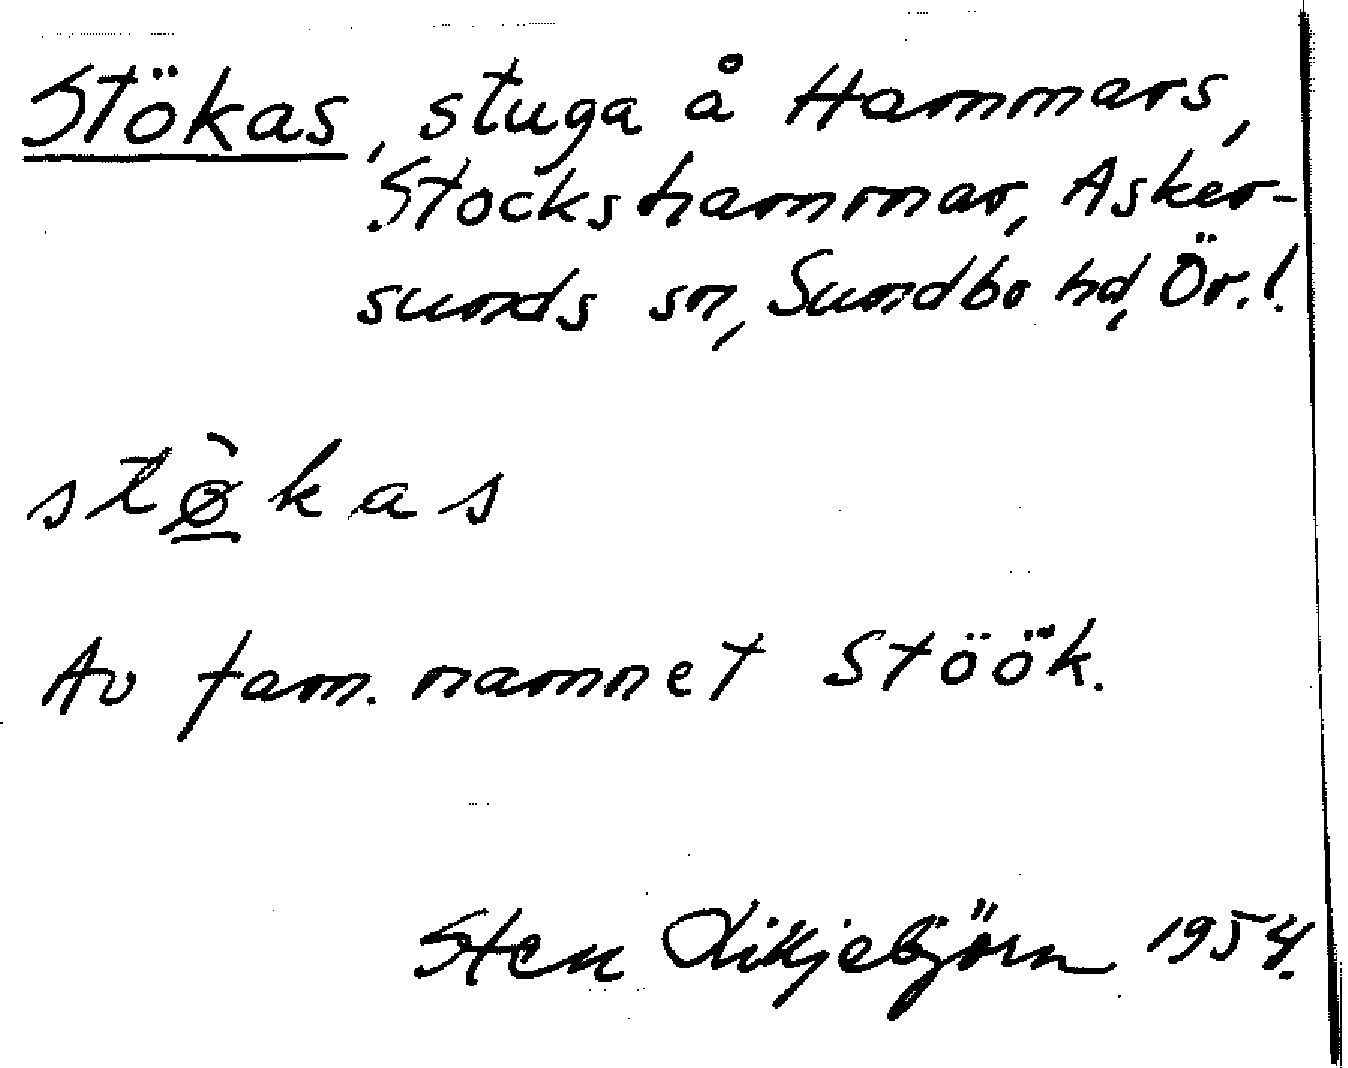 Stökas, stuga å Hammars,
Stockshammar, Asker-
sunds sn, Sundbo hd, Ör.l.
stø̱̀kas
Av fam.namnet Stöök.
Sten Liljebjörn 1954.